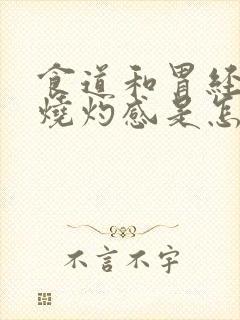 食道和胃经
烧灼感是怎
不言不字